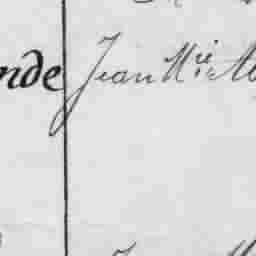 nde Jean Mie